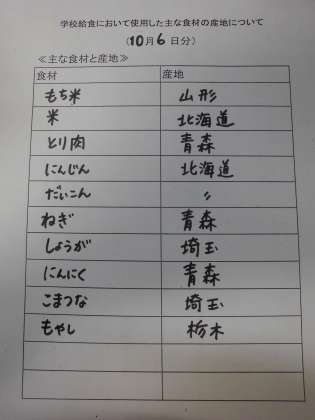 学校給食において使用した主な食材の産地について
(10月6日分)
≪主な食材と産地≫
食材 産地
もち米 山形
米 北海道
とり肉 青森
にんじん 北海道
だいこん 〃
ねぎ 青森
しょうが 埼玉
にんにく 青森
こまつな 埼玉
もやし 栃木